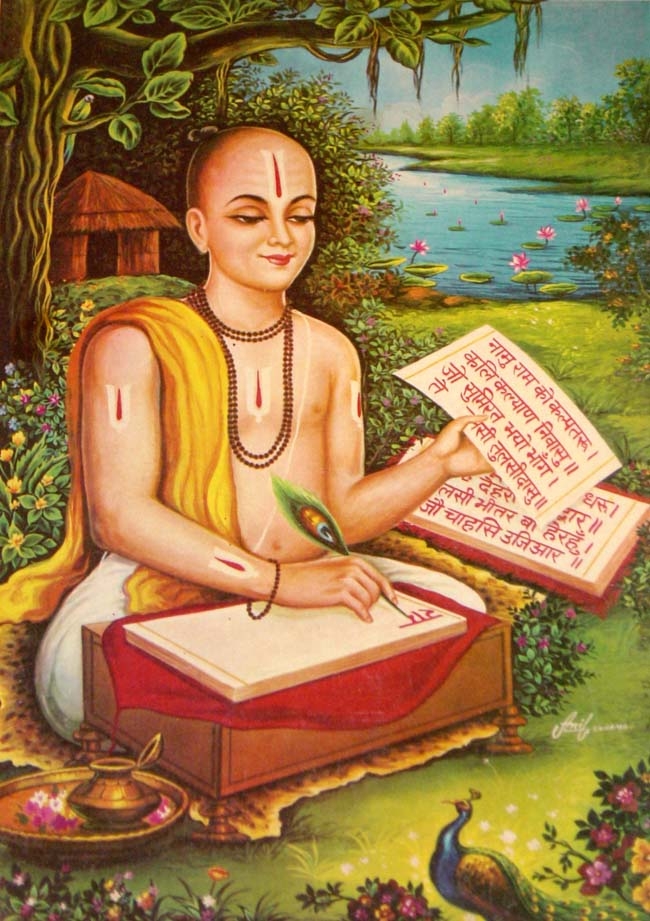 नामु राम को कल्पतरु।
कलि कल्याण निवासु॥
जौ सुमिरत भयो भाँग।
तुलसीदासु॥
धरु।
लसी भीतर बाहेरहुँ।
जौ चाहसि उजिआर॥
राम
Anil